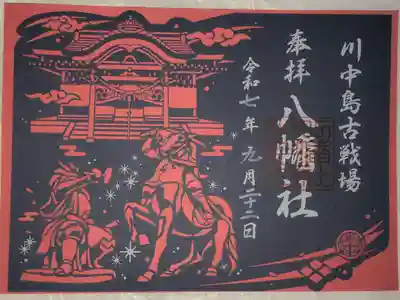 川中島古戦場
奉拝
八幡社
令和七年 九月二十二日